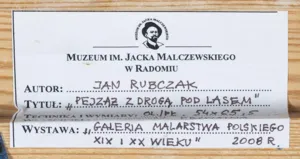 MUZEUM IM. JACKA MALCZEWSKIEGO
W RADOMIU
AUTOR: JAN RUBCZAK
TYTUŁ: „PEJZAŻ Z DROGĄ POD LASEM"
TECHNIKA I WYMIARY: OL./PŁ. 54 x 65,5
WYSTAWA: „GALERIA MALARSTWA POLSKIEGO
XIX I XX WIEKU" 2008 R.